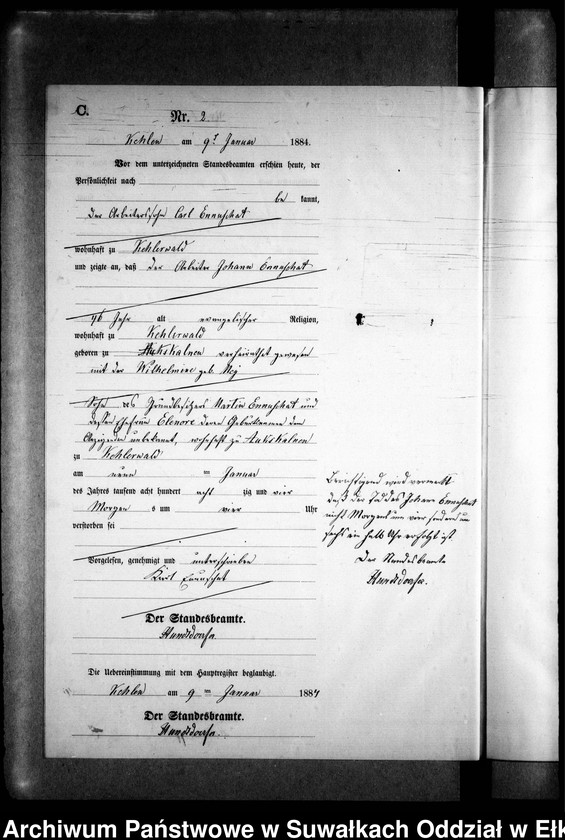 C.
Nr. 2
Kehlen am 9t Januar 1884.
Vor dem unterzeichneten Standesbeamten erschien heute, der
Persönlichkeit nach
be kannt,
der Arbeitersohn Carl Ennuschat
wohnhaft zu Kehlerwald
und zeigte an, daß der Arbeiter Johann Ennuschat
46 Jahr alt evangelischer Religion,
wohnhaft zu Kehlerwald
geboren zu Aukskalnen verheirathet gewesen
mit der Wilhelmine geb.
Sohn des Grundbesitzers Martin Ennuschat und
dessen Ehefrau Elenore deren Geburtsname dem
Anzeigenden unbekannt, wohnhaft zu Aukskalnen
zu Kehlerwald
am neun ten Januar
des Jahres tausend acht hundert acht zig und vier
Morgen s um vier Uhr
verstorben sei
Vorgelesen, genehmigt und unterschrieben
Karl Ennuschat
Der Standesbeamte.
Hundsdoerfer
Die Uebereinstimmung mit dem Hauptregister beglaubigt.
Kehlen am 9 ten Januar 1884
Der Standesbeamte.
Hundsdoerfer.
Berichtigend wird vermerkt
daß der Tod des Johann Ennuschat
nicht Morgens um vier sondern um
sechs ein halb Uhr erfolgt ist
Der Standesbeamte
Hundsdoerfer.
Archiwum Państwowe w Suwałkach Oddział w Ełk